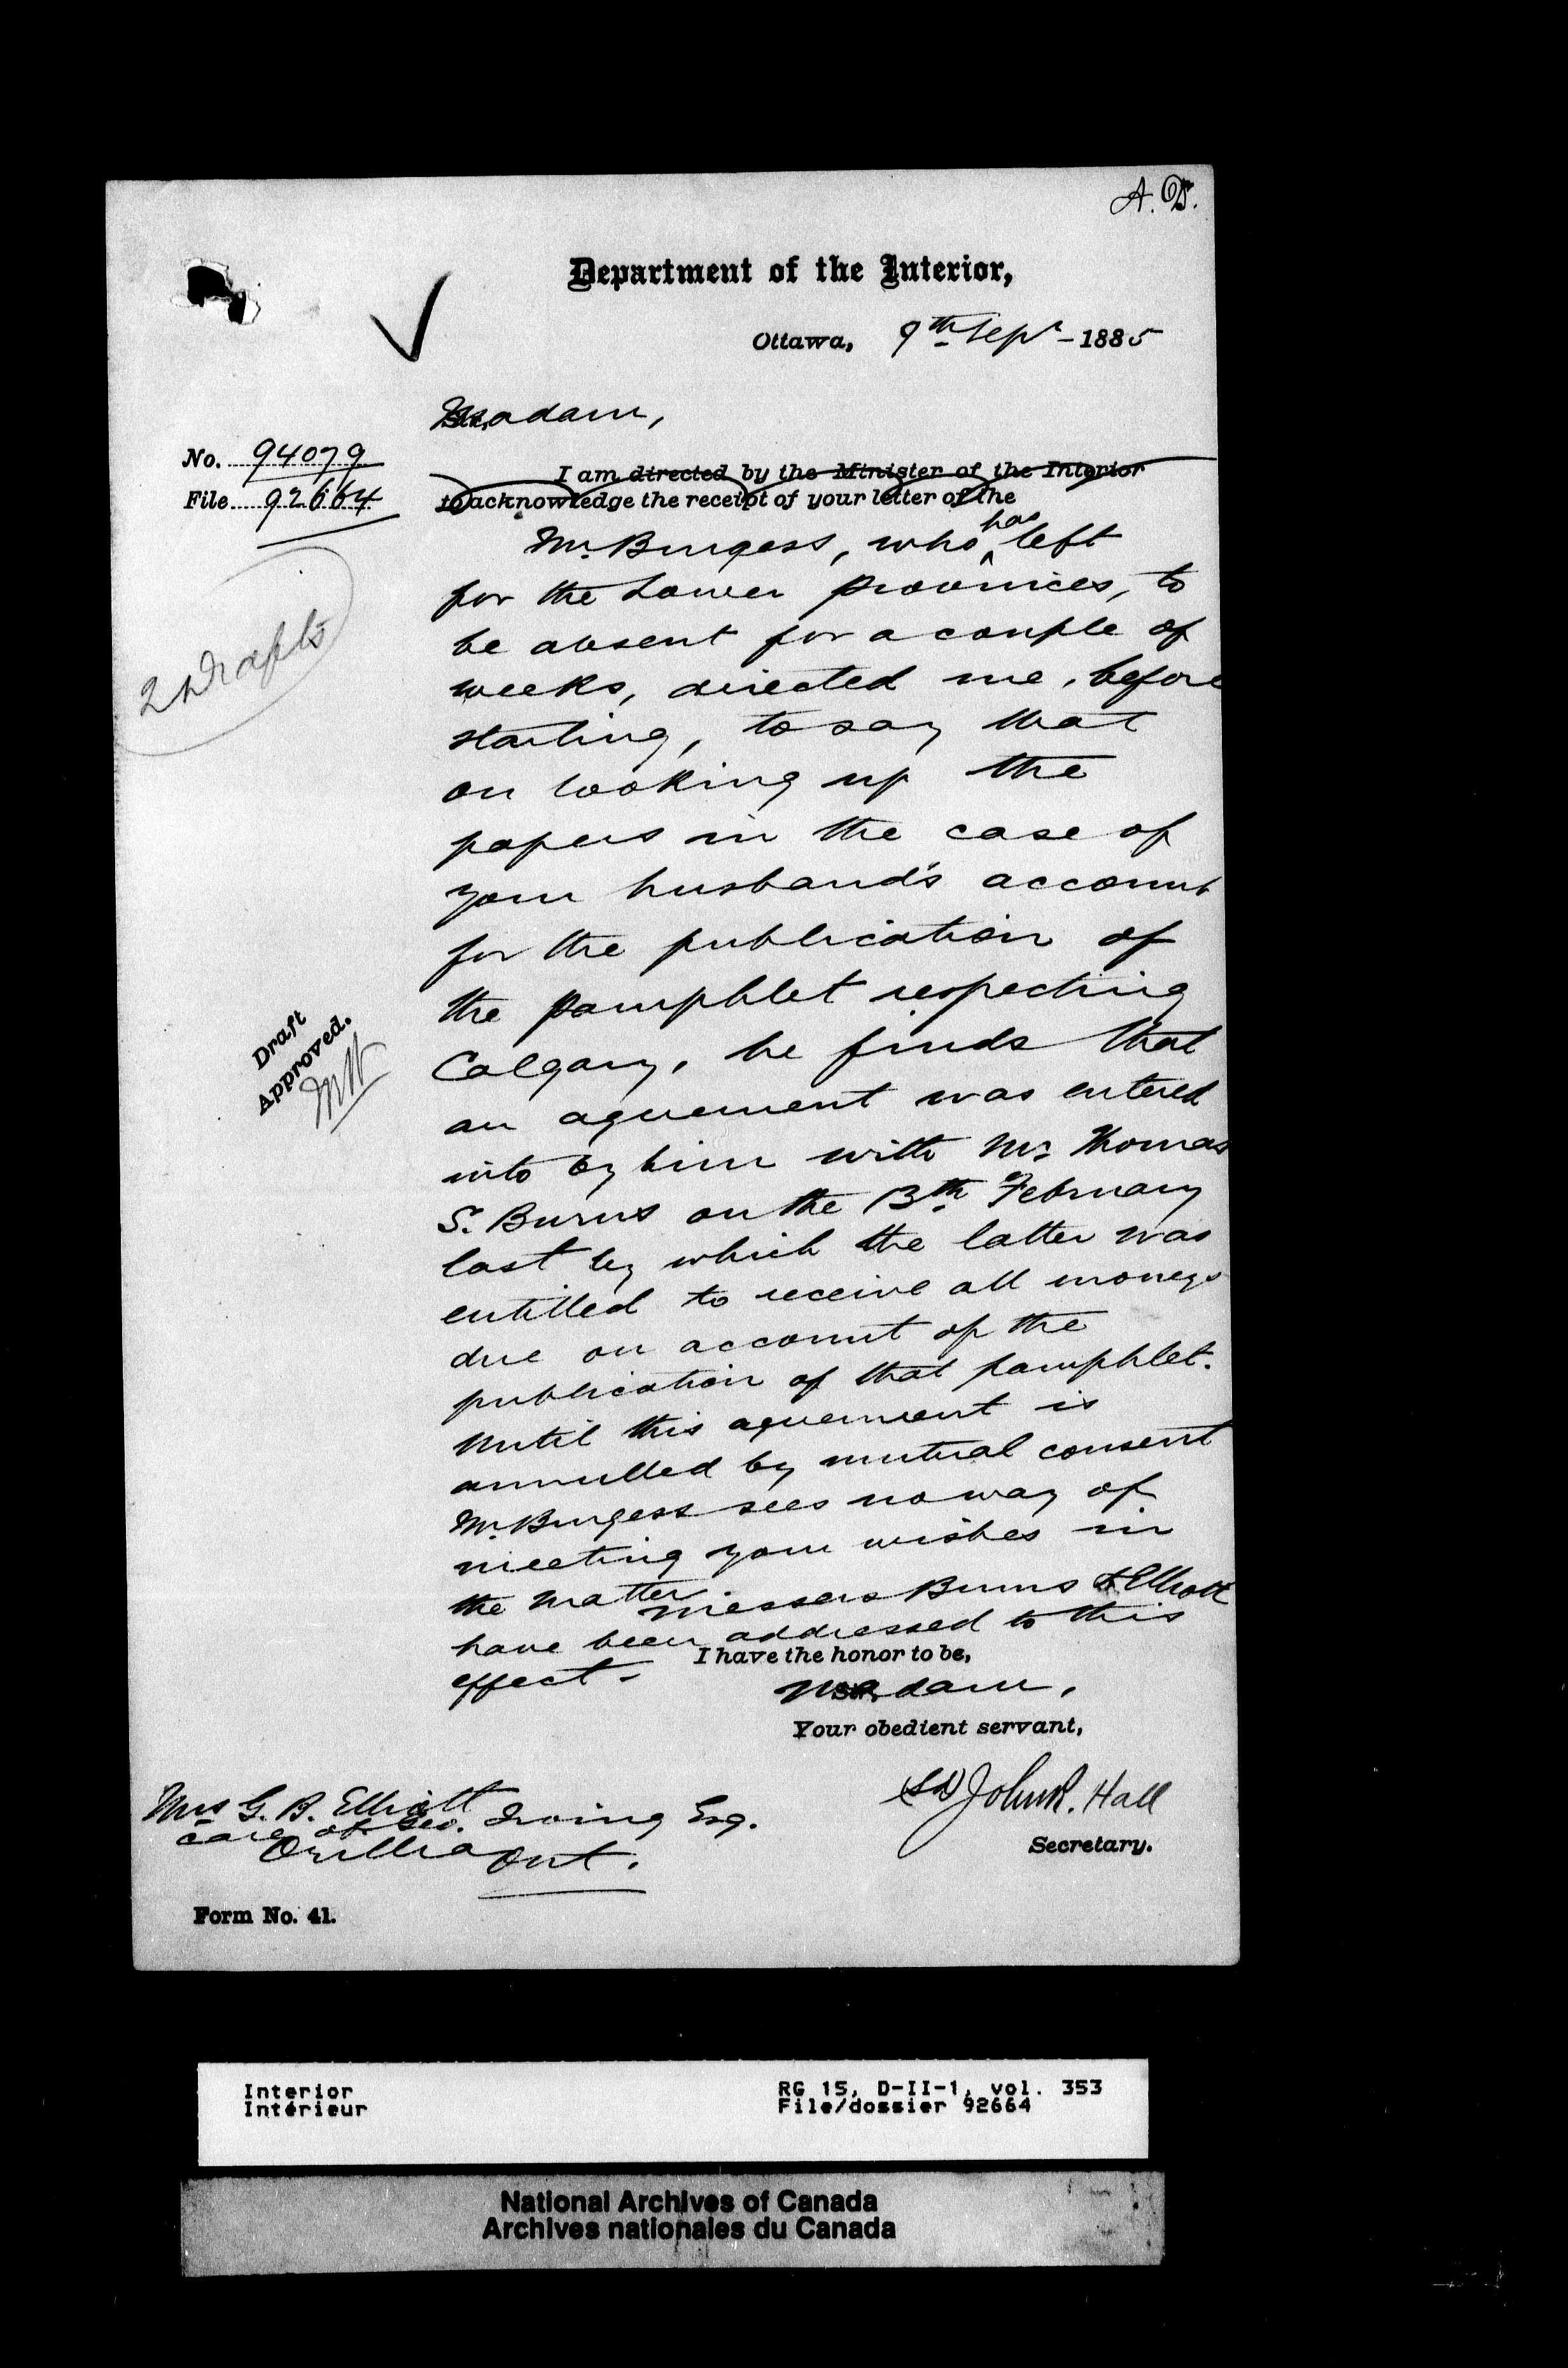 A. D.
Department of the Interior,
Ottawa, 9th Sepr - 1885
Madam,
No. 94079
File 92664
I am directed by the Minister of the Interior
to acknowledge the receipt of your letter of the
Mr. Burgess, who has left
for the Lower provinces, to
be absent for a couple of
weeks, directed me, before
starting, to say that
on looking up the
papers in the case of
your husband's account
for the publication of
the pamphlet respecting
Calgary, he finds that
an agreement was entered
into by him with Mr. Thomas
S. Burns on the 13th February
last by which the latter was
entitled to receive all moneys
due on account of the
publication of that pamphlet.
Until this agreement is
annulled by mutual consent
Mr. Burgess sees no way of
meeting your wishes in
the matter. Messers Burns & Elliott
have been addressed to this
effect -
2 Drafts
Draft
Approved.
I have the honor to be,
Madam,
Your obedient servant,
John R. Hall
Secretary.
Mrs G. B. Elliott
care of Geo. Irving Esq.
Orillia Ont.
Form No. 41.
Interior
Intérieur
RG 15, D-II-1, vol. 353
File/dossier 92664
National Archives of Canada
Archives nationales du Canada